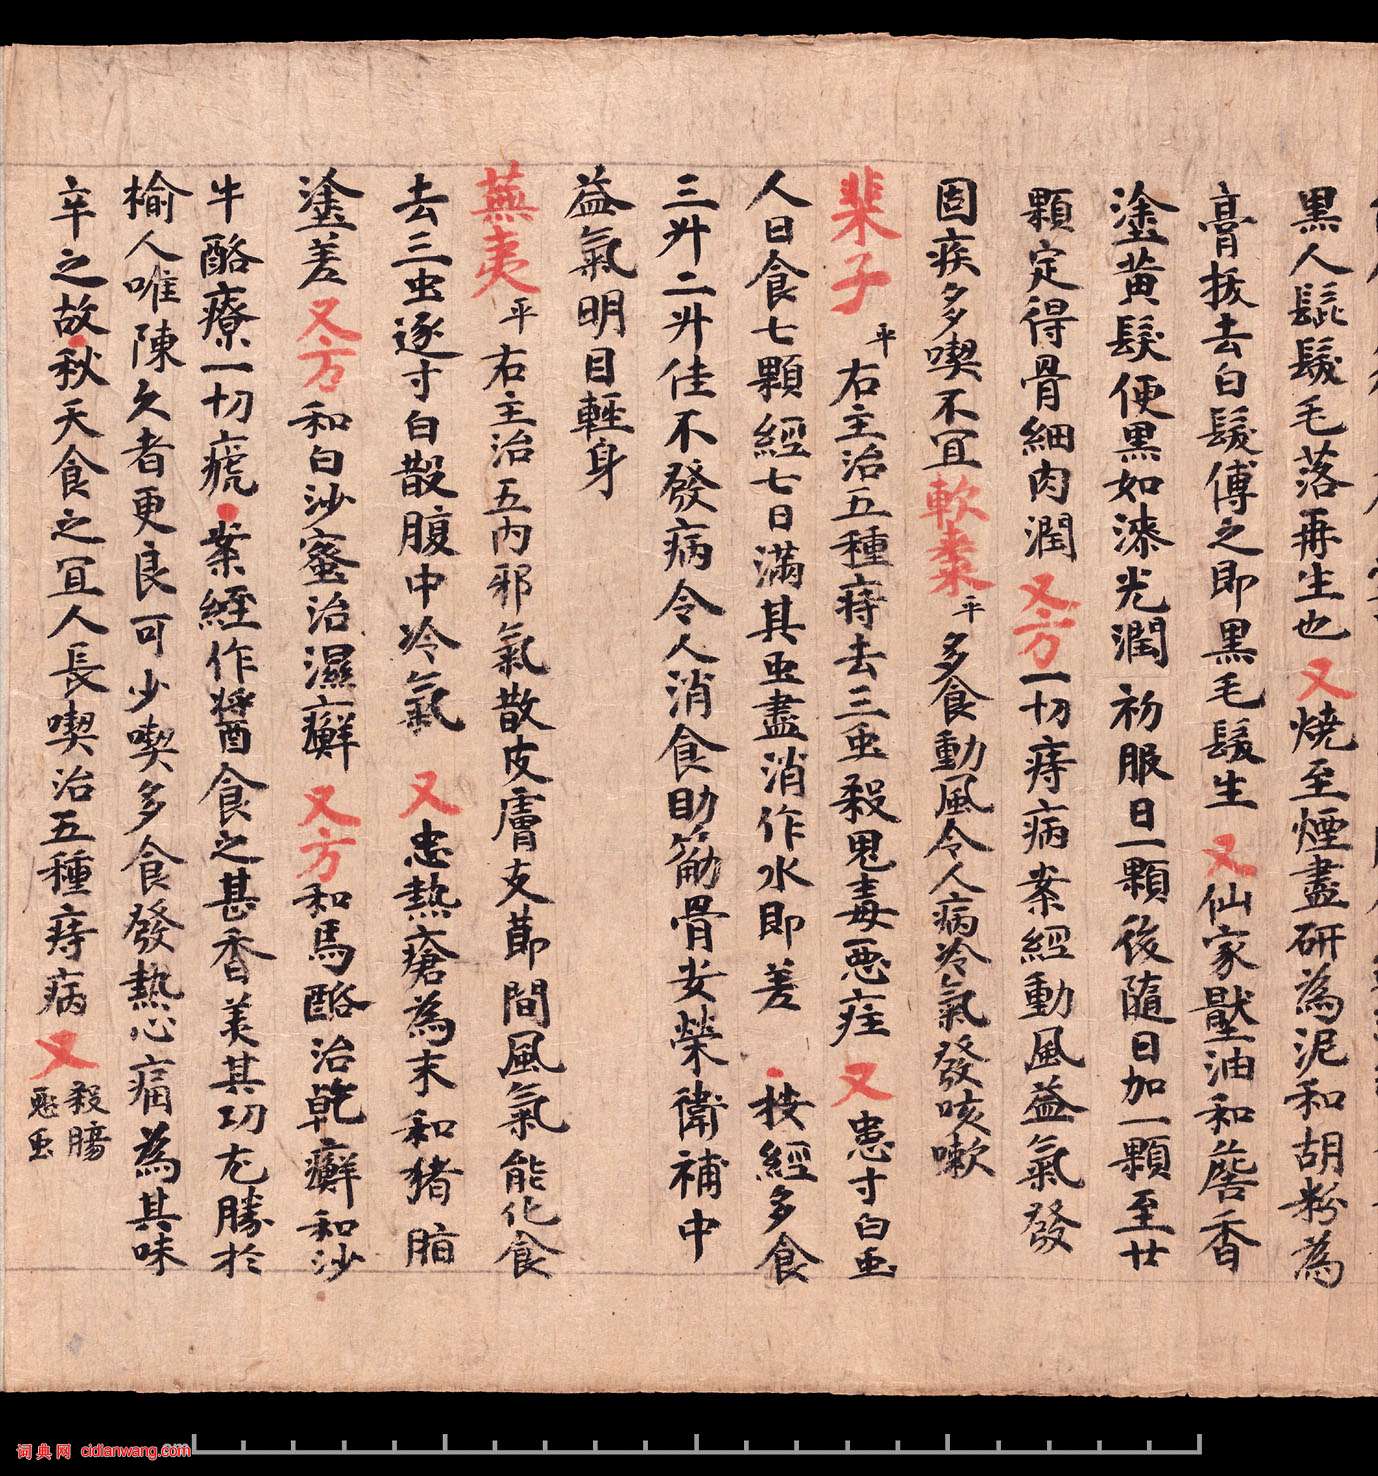 黑人髭鬚毛落再生也又燒至煙盡研為泥和胡粉為
膏拔去白髮傅之即黑毛髮生又仙家壓油和麃香
塗黃髮便黑如漆光潤初服日一顆後隨日加一顆至廿
顆定得骨細肉潤又方一切痔病案經動風益氣發
固疾多喫不冝軟棗平多食動風令人病冷氣發咳嗽
棐子平右主治五種痔去三虫殺鬼毒惡疰又患寸白虫
人日食七顆經七日滿其虫盡消作水即差按經多食
三升二升佳不發病令人消食助筋骨安榮衛補中
益氣明目輕身
蕪荑平右主治五內邪氣散皮膚支節間風氣能化食
去三虫逐寸白散腹中冷氣又患熱瘡為末和猪脂
塗差又方和白沙蜜治濕癬又方和馬酪治乾癬和沙
牛酪療一切瘡案經作醬食之甚香美其功尤勝於
榆人唯陳久者更良可少喫多食發熱心痛為其味
辛之故秋天食之冝人長喫治五種痔病又殺腸
惡虫
词典网 cidianwang.com